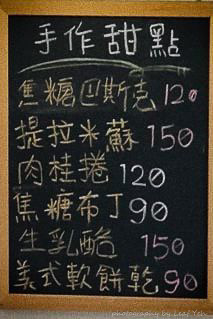 手作甜點
焦糖巴斯克 120
提拉米蘇 150
肉桂捲 120
焦糖布丁 90
生乳酪 150
美式軟餅乾 90
photography by Leaf Yeh